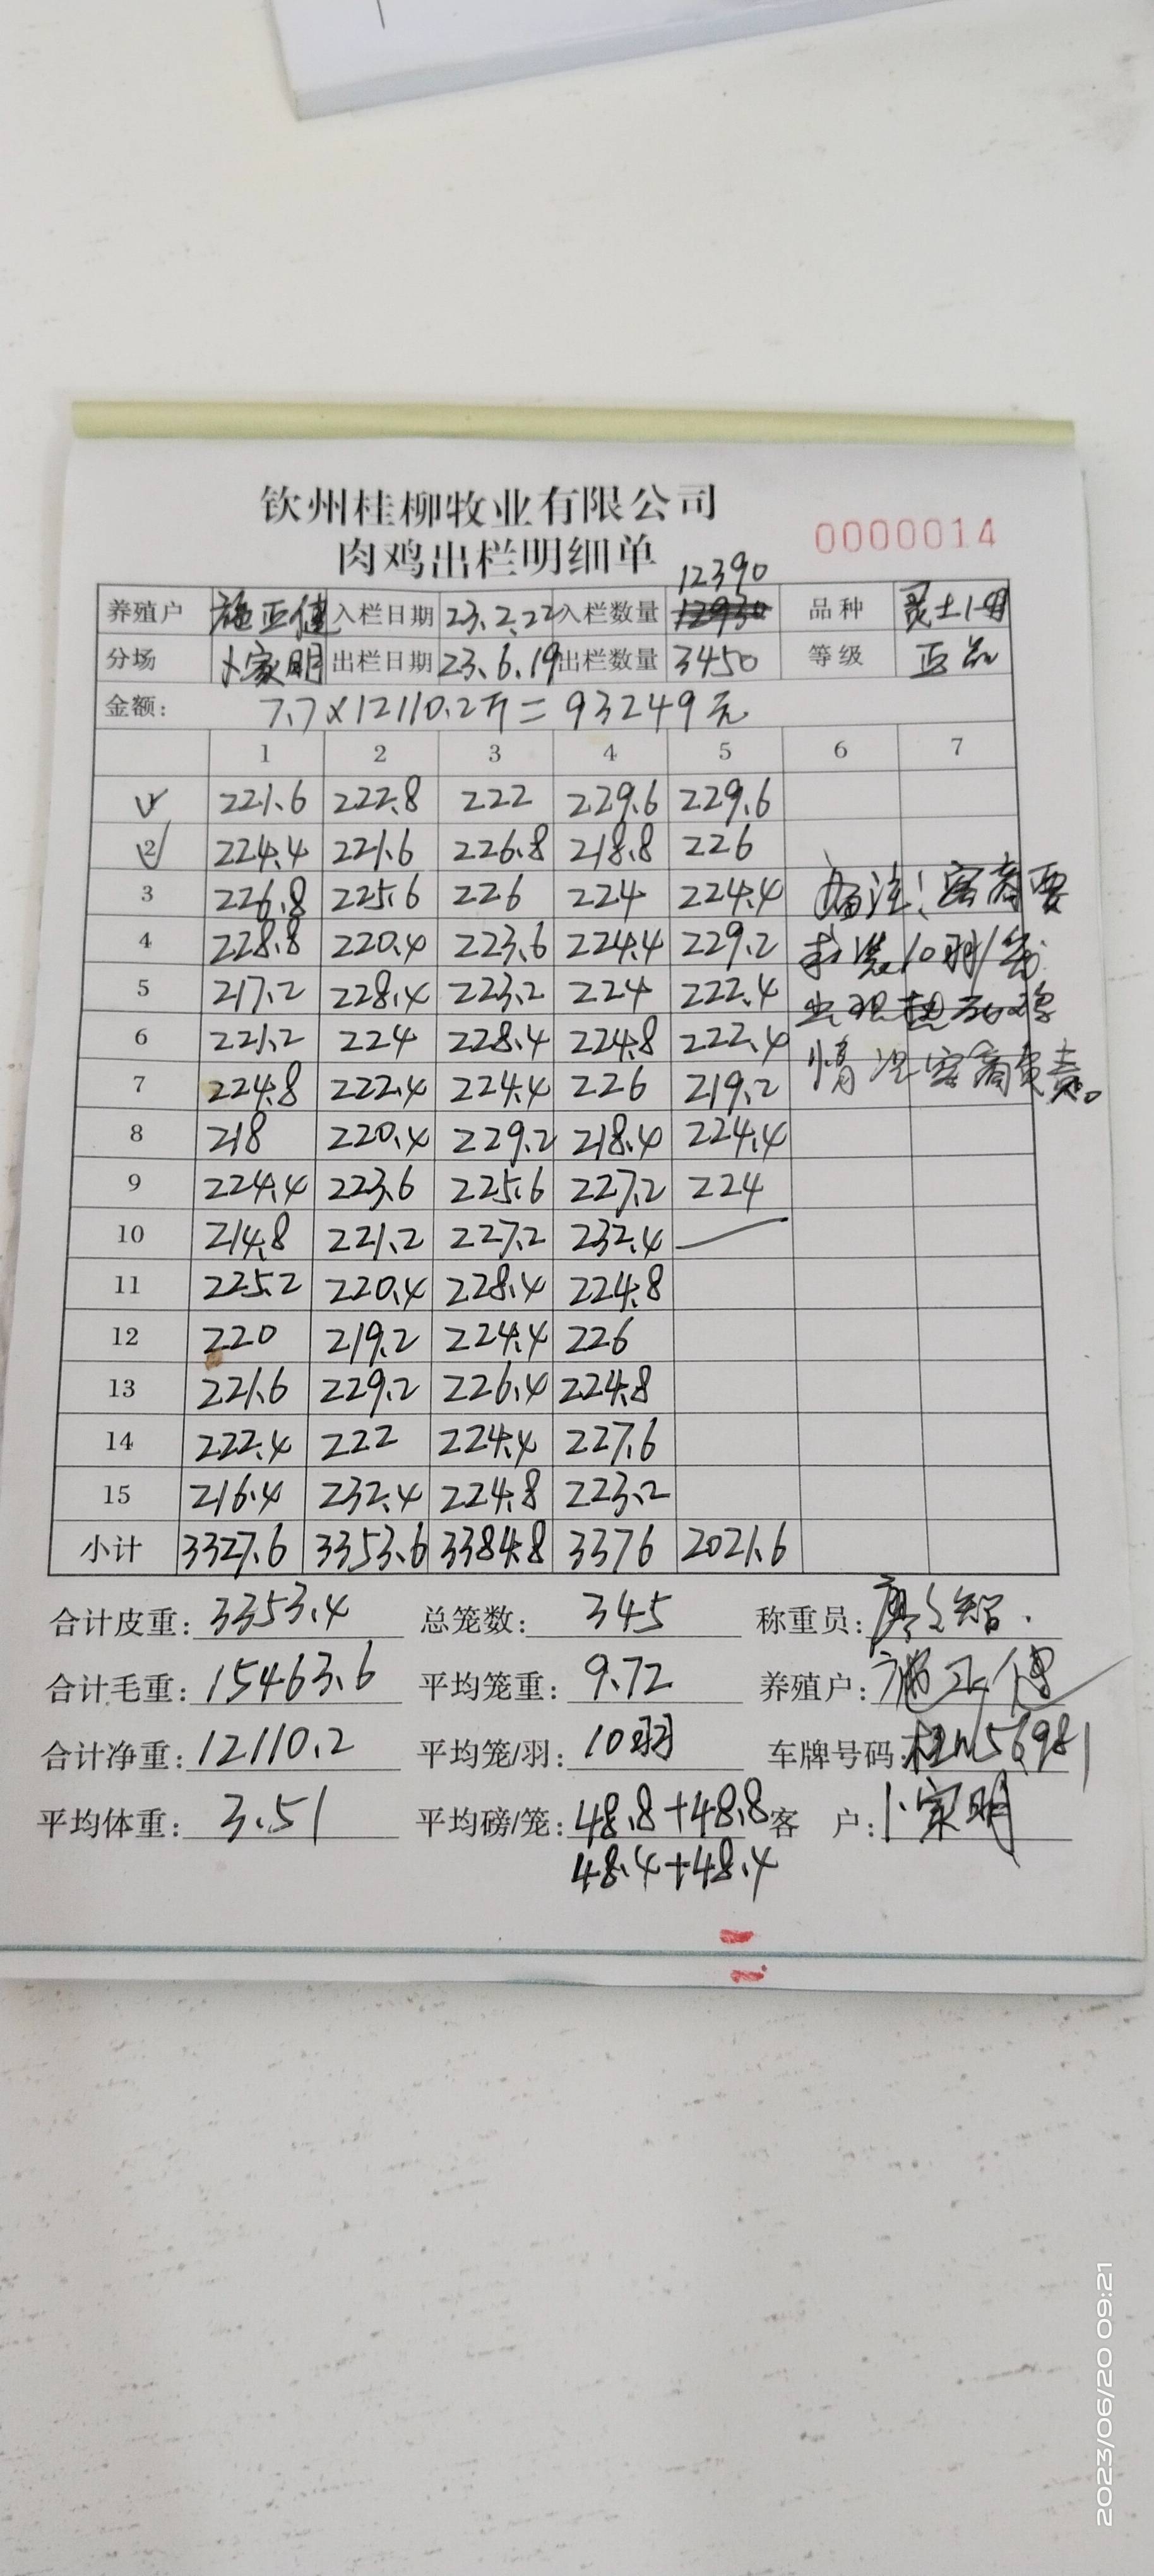 钦州桂柳牧业有限公司
肉鸡出栏明细单
0000014
12390
养殖户 施正健 入栏日期 23.2.22 入栏数量 品种 灵土1号
分场 卜家明 出栏日期 23.6.19 出栏数量 3450 等级 正品
金额: 7.7×12110.2斤=93249元
1 2 3 4 5 6 7
1 221.6 222.8 222 229.6 229.6
2 224.4 221.6 226.8 218.8 226
3 226.8 225.6 226 224 224.4 备注:客商要
4 228.8 220.4 223.6 224.4 229.2 求装10羽/笼
5 217.2 228.4 223.2 224 222.4 出现热死鸡
6 221.2 224 228.4 224.8 222.4 情况客商负责。
7 224.8 222.4 224.4 226 219.2
8 218 220.4 229.2 218.4 224.4
9 224.4 223.6 225.6 227.2 224
10 214.8 221.2 227.2 232.4
11 225.2 220.4 228.4 224.8
12 220 219.2 224.4 226
13 221.6 229.2 226.4 224.8
14 222.4 222 224.4 227.6
15 216.4 232.4 224.8 223.2
小计 3327.6 3353.6 3384.8 3376 2021.6
合计皮重: 3353.4 总笼数: 345 称重员:
合计毛重: 15463.6 平均笼重: 9.72 养殖户: 施正健
合计净重: 12110.2 平均笼/羽: 10羽 车牌号码:
平均体重: 3.51 平均磅/笼: 48.8+48.8 客 户: 卜家明
48.4+48.4
2023/06/20 09:21